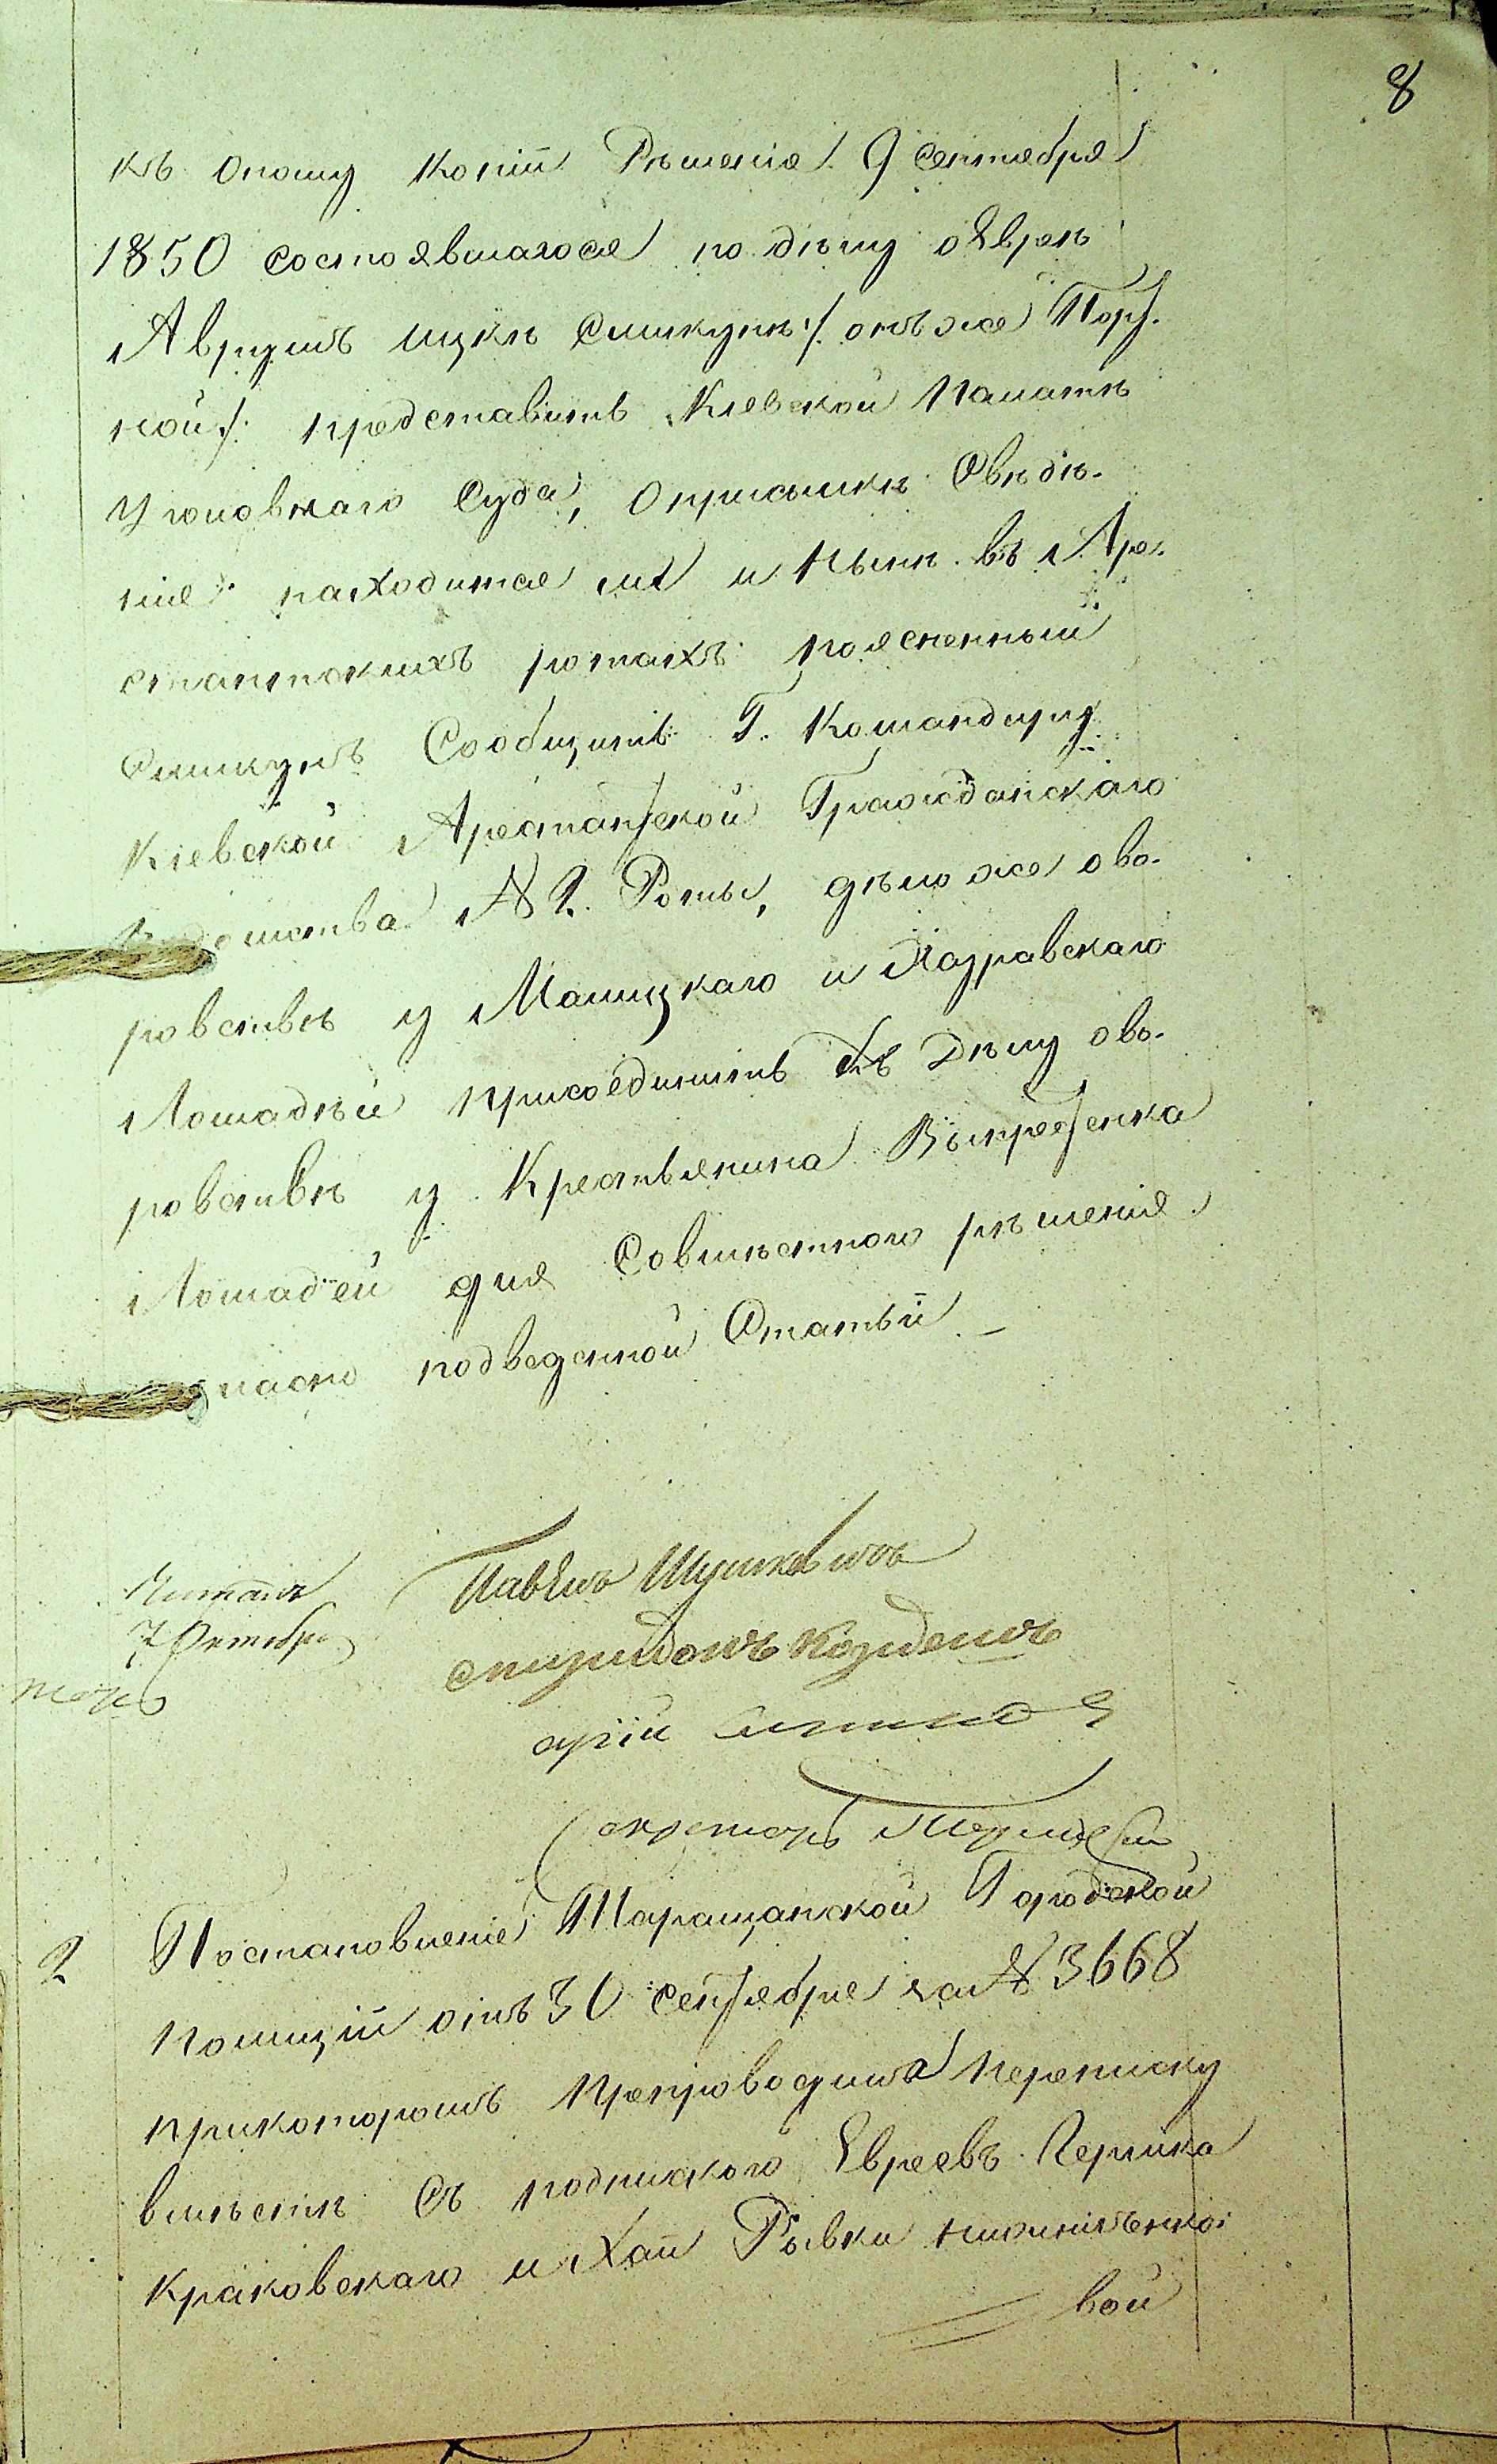 8
къ оному копіи Рѣшенія 9 сентября
1850 состоявшагося по дѣлу о Еврѣ
Аврумѣ Ицкѣ Смикунѣ /: онъ же Порт
ной /: представить Кіевской Палатѣ
Уголовнаго Суда, о присылкѣ Свѣдѣ-
нія находится ли и нынѣ въ Аре-
стантскихъ ротахъ поясненный
Смикунъ Сообщить Г. Командиру
Кіевской Арестантской Гражданскаго
Вѣдомства № 2. Роты, дѣло же о во-
ровствѣ у Малицкаго и
Лошадѣй присоединить къ Дѣлу о во-
ровствѣ у Крестьянина
Лошадей для Совмѣстного рѣшенія
подведенной Статьи. —
Читалъ
7 Октября
Павелъ
Спиридонъ
Секретарь
2 Постановленіе Таращанской Городской
Полиціи отъ 30 сентября за № 3668
прикоторомъ препроводила переписку
вмѣстѣ Съ подпискою Евреевъ Гершка
Краковскаго и Хаи Рывки
вой